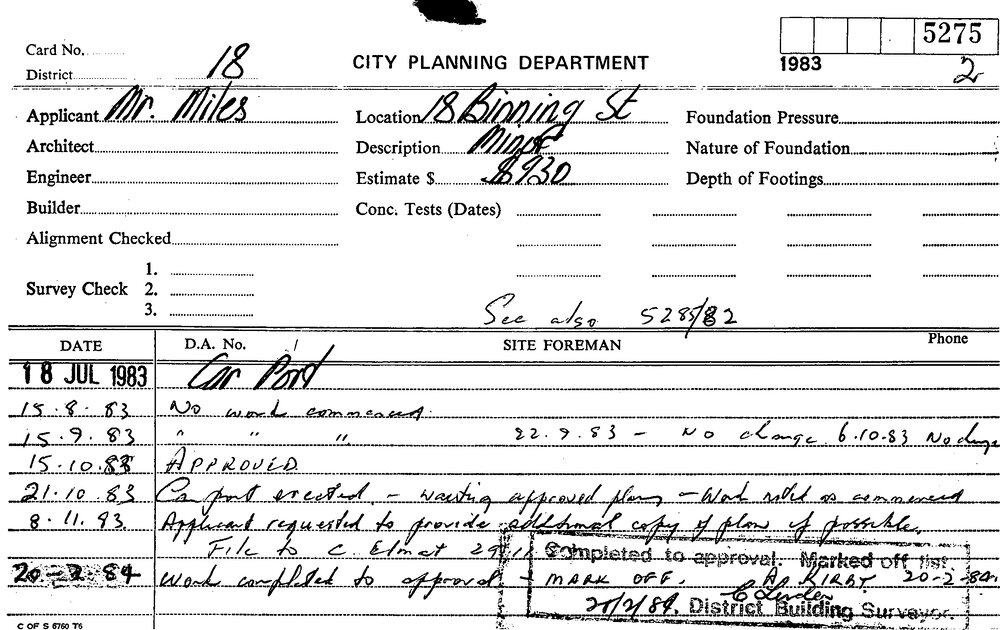 5275
Card No.
1983
2
District 18
CITY PLANNING DEPARTMENT
Applicant Mr. Miles
Location 18 Binning St
Foundation Pressure
Architect
Description Minor
Nature of Foundation
Engineer
Estimate $ $930
Depth of Footings
Builder
Conc. Tests (Dates)
Alignment Checked
Survey Check
1.
2.
3.
See also 5285/82
DATE
D.A. No. /
SITE FOREMAN
Phone
18 JUL 1983 Car Port
15.8.83 No work commenced.
15.9.83 " " " 22.9.83 - No change 6.10.83 No change
15.10.83 APPROVED
21.10.83 Car port erected. - waiting approved plans - Work noted as commenced
8.11.83. Applicant requested to provide additional copy of plan if possible.
File to C. 29/11
Completed to approval. Marked off list.
20-2-84 Work completed to approval - MARK OFF. KIRBY 20-2-84.
20/2/84. District Building Surveyor.
C OF S 6760 T6